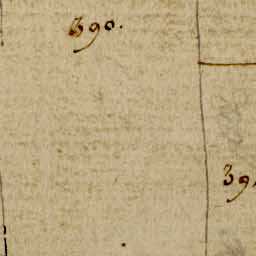 390.
39